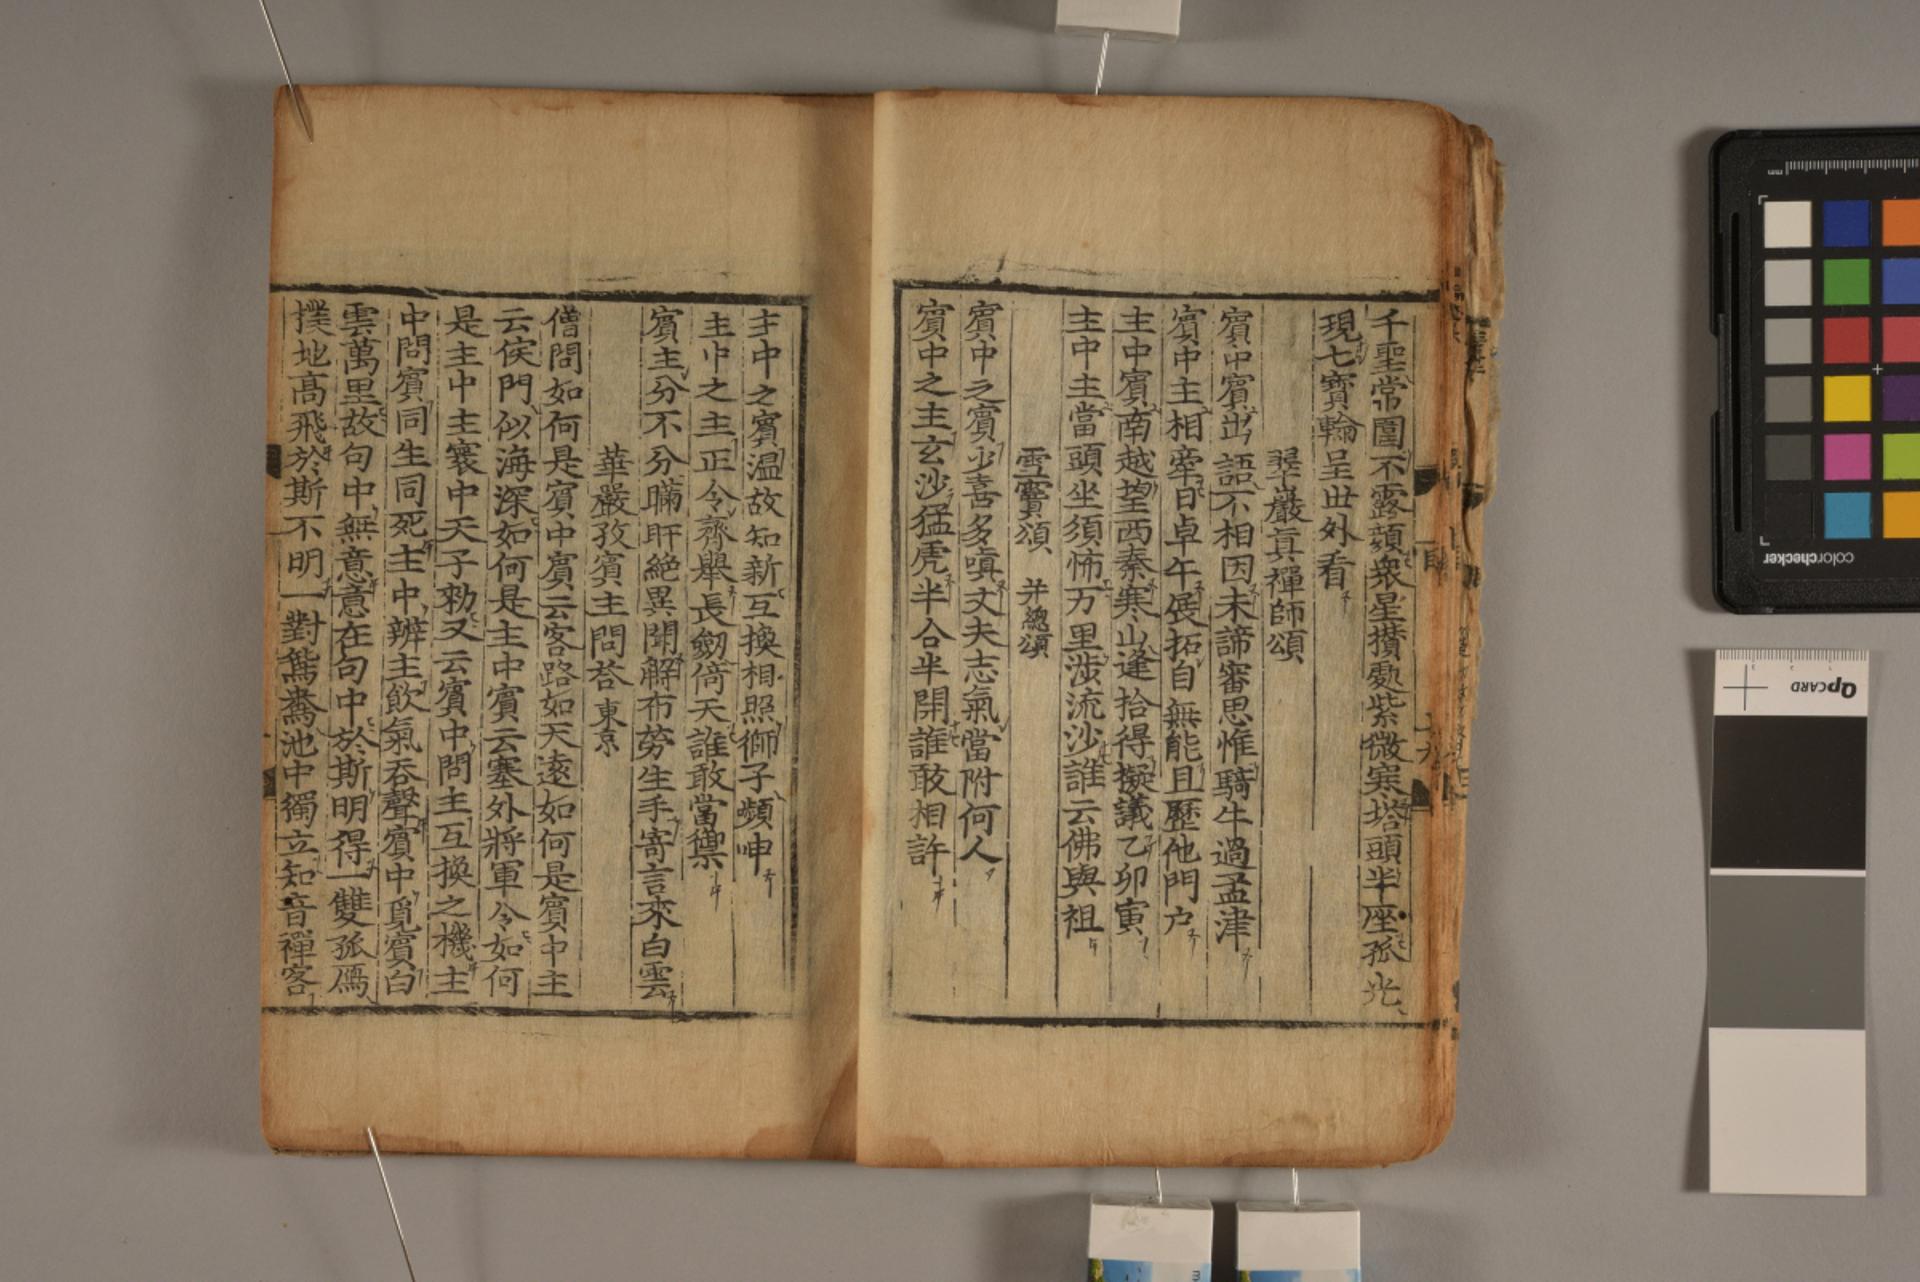 千聖常圍不露顔衆星攅處紫微寒塔頭半座孤光
現七寶輪呈世外看
翠巖眞禪師頌
賓中賓出語不相因未諦審思惟騎牛過孟津
賓中主相牽日卓午展拓自無能且歷他門户
主中賓南越望西秦寒山逢拾得擬議乙卯寅
主中主當頭坐須怖万里涉流沙誰云佛與祖
雪竇頌 并總頌
賓中之賓少喜多嗔丈夫志氣當附何人
賓中之主玄沙猛虎半合半開誰敢相許
主中之賓温故知新互換相照獅子嚬呻
主中之主正令齊舉長劒倚天誰敢當禦
賓主分不分顢頇絶異聞解布勞生手寄言来白雲
華嚴孜賓主問荅 東京
僧問如何是賓中賓云客路如天遠如何是賓中主
云侯門似海深如何是主中賓云塞外將軍令如何
是主中主寰中天子勑又云賓中問主互換之機主
中問賓同生同死主中辨主飲氣吞聲賓中覓賓白
雲萬里故句中無意意在句中於斯明得一雙孤鴈
撲地高飛於斯不明一對鴛鴦池中獨立知音禪客
colorchecker
mm
QPCARD